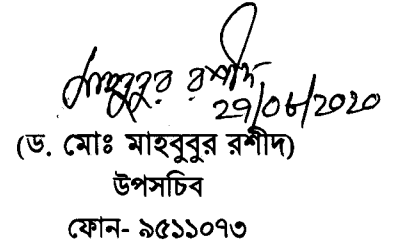 মাহবুবুর রশীদ
29/06/2020
(ড. মোঃ মাহবুবুর রশীদ)
উপসচিব
ফোন- ৯৫১১০৭৩